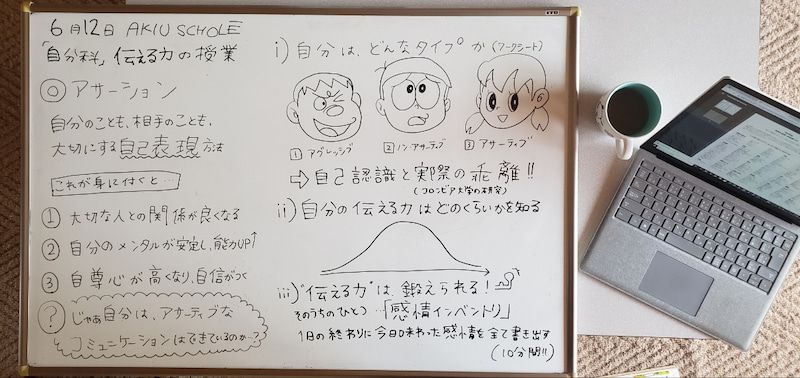 6月12日 AKIU SCHOLE
「自分科」伝える力の授業
◎ アサーション
自分のことも、相手のことも、
大切にする自己表現方法
これが身に付くと…
① 大切な人との関係が良くなる
② 自分のメンタルが安定し、能力UP↑
③ 自尊心が高くなり、自信がつく
? じゃあ自分は、アサーティブな
コミュニケーションはできているのか…?
i) 自分は、どんなタイプか (ワークシート)
1 アグレッシブ 2 ノン・アサーティブ 3 アサーティブ
⇨ 自己認識と実際の乖離!!
(コロンビア大学の研究)
ii) 自分の伝える力はどのくらいかを知る
iii) "伝える力"は、鍛えられる!
そのうちのひとつ…「感情インベントリ」
1日の終わりに今日味わった感情を全て書き出す
(10分間!!)